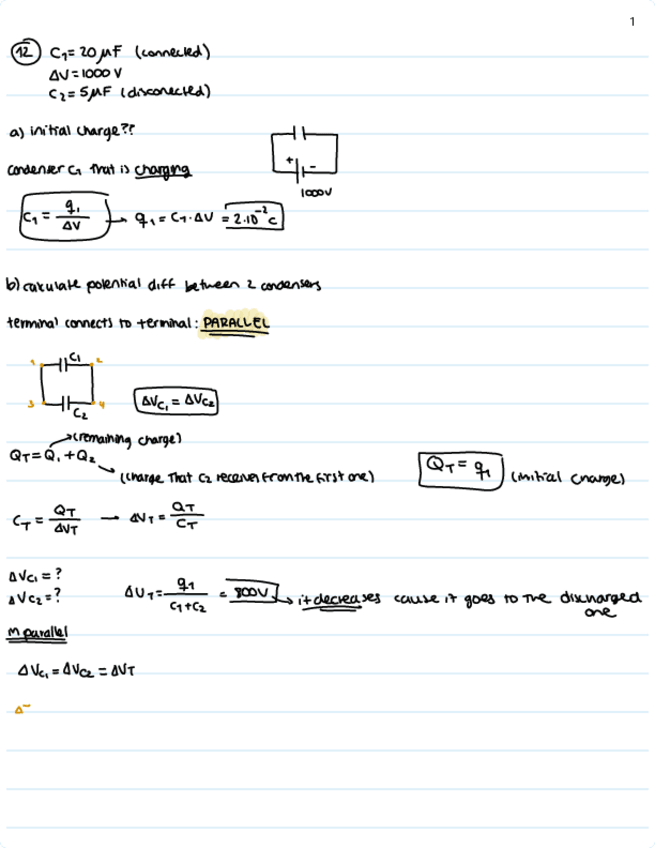 1
12 C₁ = 20 μF (connected)
ΔV = 1000 V
C₂ = 5 μF (disconected)
a) initial charge??
condenser C₁ that is charging
+ -
1000V
C₁ = q₁/ΔV → q₁ = C₁·ΔV = 2·10⁻² C
b) calculate potential diff between 2 condensers
terminal connects to terminal: PARALLEL
1 C₁ 2
3 C₂ 4
ΔVc₁ = ΔVc₂
(remaining charge)
QT = Q₁ + Q₂
(charge that C₂ receives from the first one)
QT = q₁ (initial charge)
CT = QT/ΔVT — ΔVT = QT/CT
ΔVc₁ = ?
ΔVc₂ = ?
ΔVT = q₁/(C₁+C₂) = 800V → it decreases cause it goes to the discharged one
in parallel
ΔVc₁ = ΔVc₂ = ΔVT
Δ-